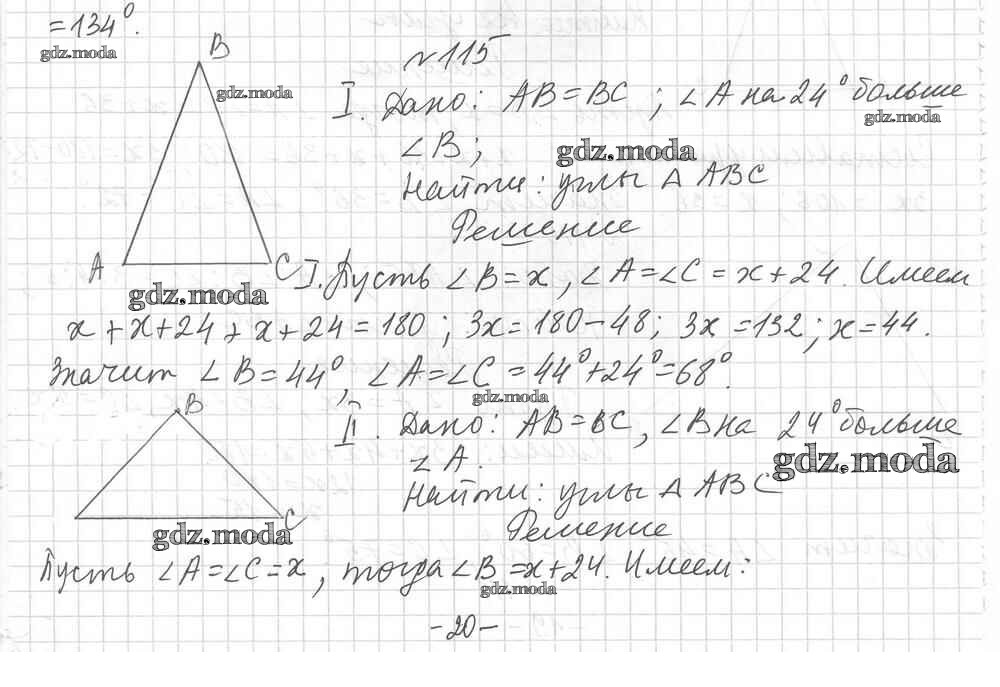 = 134°.
gdz.moda
B
gdz.moda
№115
I. Дано: AB = BC ; ∠A на 24° больше
gdz.moda
∠B ;
gdz.moda
Найти: углы Δ ABC
Решение
A
C
gdz.moda
I. Пусть ∠B = x , ∠A = ∠C = x + 24. Имеем
x + x + 24 + x + 24 = 180 ; 3x = 180 − 48; 3x = 132 ; x = 44.
Значит ∠B = 44°, ∠A = ∠C = 44° + 24° = 68°.
gdz.moda
B
II. Дано: AB = BC , ∠B на 24° больше
∠A.
gdz.moda
Найти: углы Δ ABC
C
gdz.moda
Решение
Пусть ∠A = ∠C = x , тогда ∠B = x + 24. Имеем:
gdz.moda
- 20 -